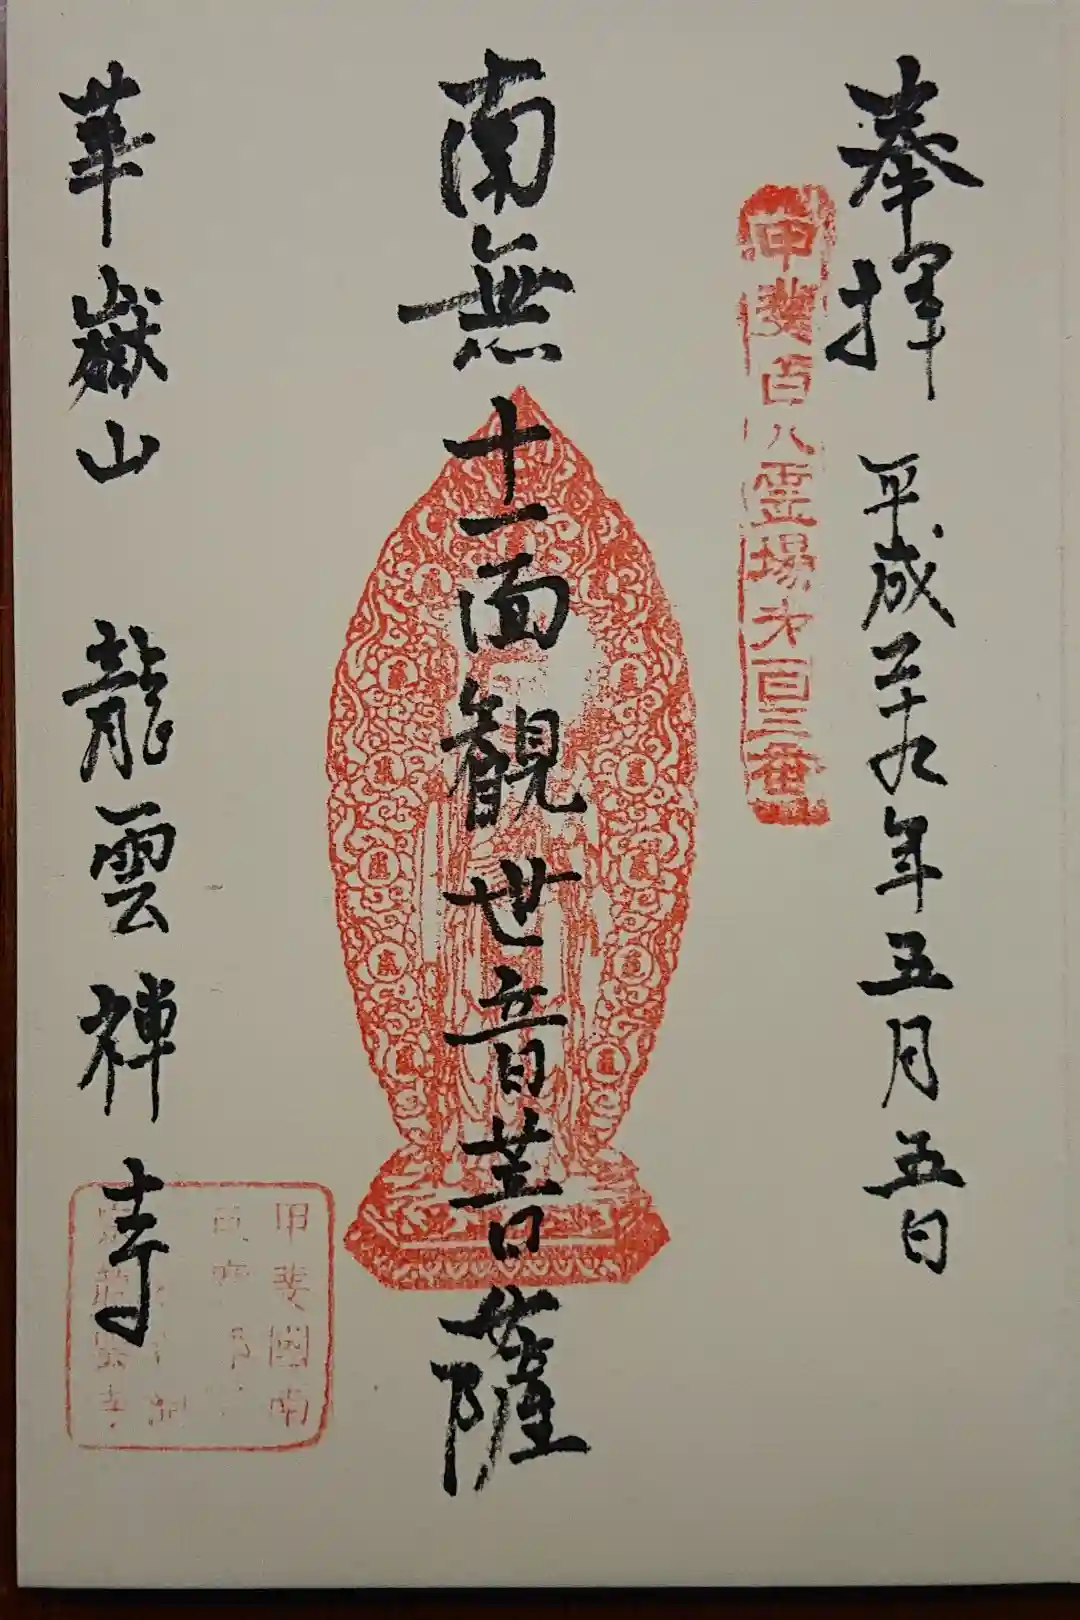 奉拝 平成二十九年五月五日
甲斐百八霊場才百三番
南無十一面観世音菩薩
華嶽山 龍雲禅寺
甲斐國南